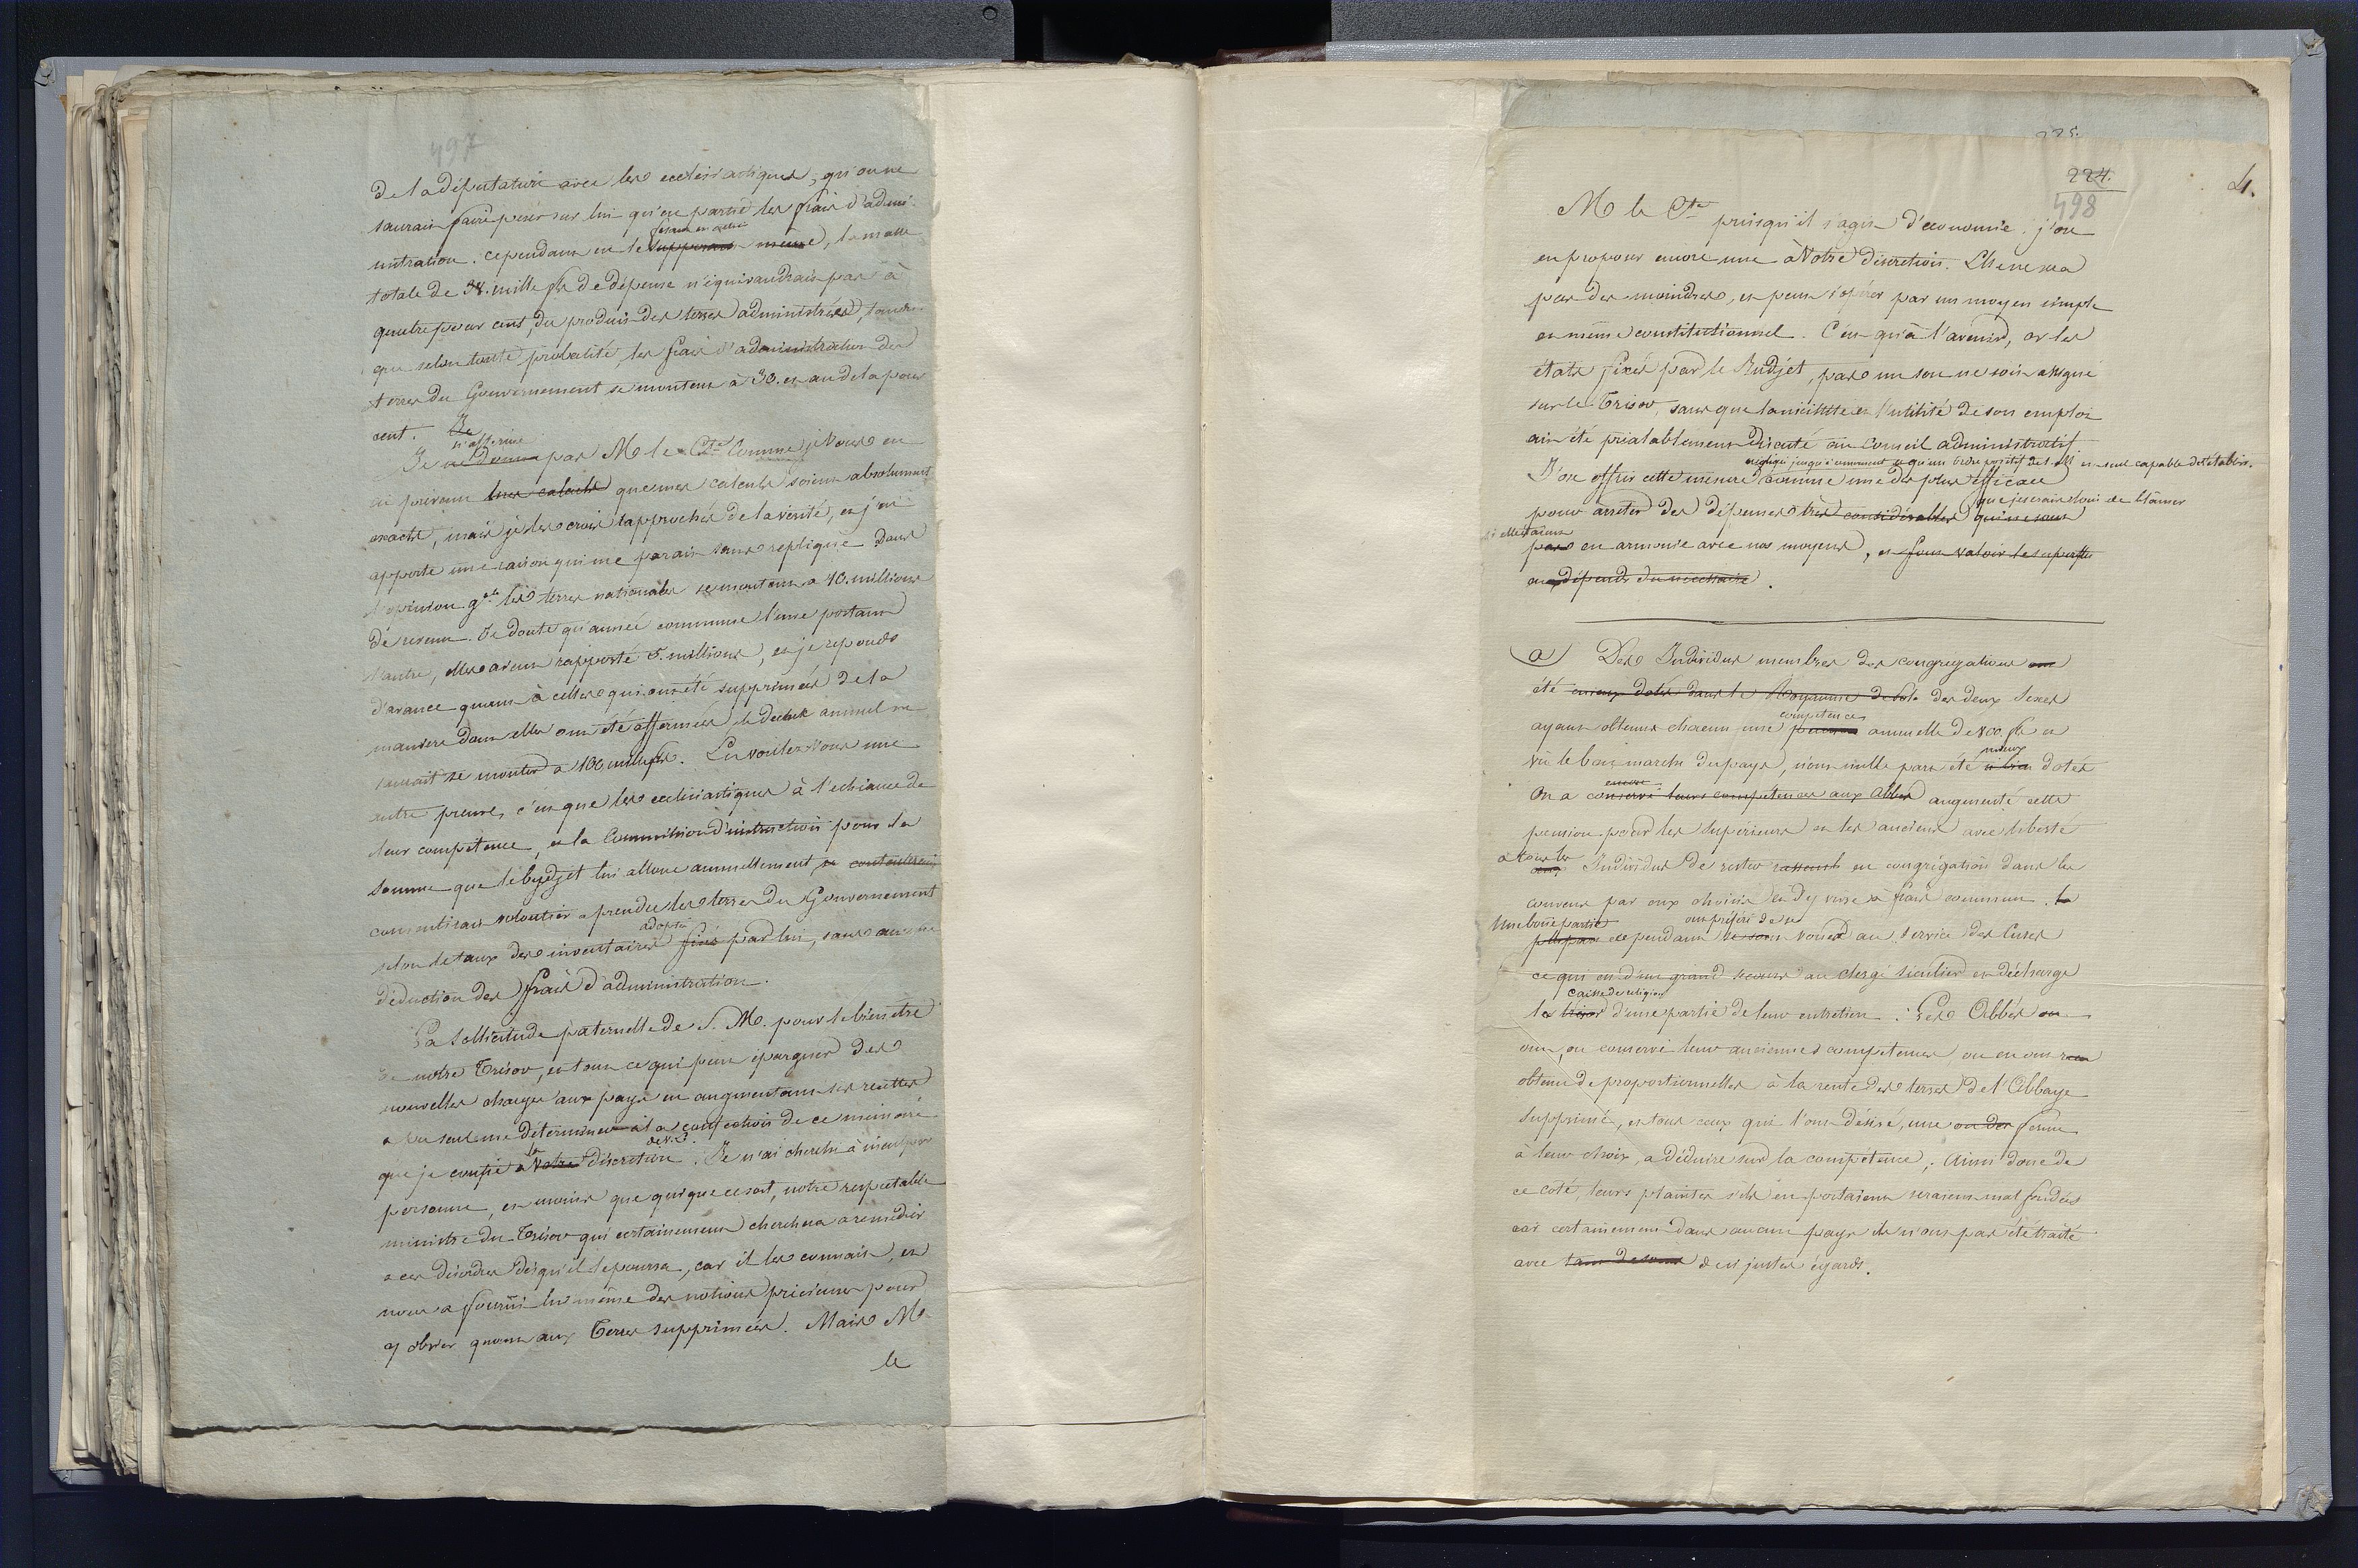 497
De la députature avec les ecclésiastiques, qu'on ne
saurait faire peser sur lui qu'en partie les frais d'admi-
nistration. Cependant en le faisant en entier supposant même, la masse
totale de 38. mille fls de dépense n'équivaudrait pas à
quatre pour cent, du produit des terres administrées, tandis
que selon toute probabilité, les frais d'administration des
terres du Gouvernement se montent à 30. et au dela pour
cent. Je
n'affirme
Je ne donne pas M le Cte comme je Vous en
ai prévenu mes calculs que mes calculs soient absolument
exacts, mais je les crois rapprochés de la vérité, et j'en
apporte une raison qui me parait sans replique. Dans
l'opinion gle les terres nationales se montent a 10. millions
de revenu. Je doute qu'année commune l'une portant
l'autre, elles aient rapporté 5. millions, et je reponds
d'avance quant à celles qui ont été supprimées de la
maniere dont elles ont été affermées le dechet annuel ne
saurait se monter a 100 mille fls. En voulez Vous une
autre preuve, c'est que les ecclésiastiques à l'echéance de
leur compétence, et la Commission d'instruction pour la
somme que le budjet lui alloue annuellement, se contenterait
consentirait volontier a prendre les terres du Gouvernement
adopté
selon le taux des inventaires fixé par lui, sans aucune
déduction des frais d'administration.
La sollicitude paternelle de S. M. pour le bien être
de notre Trésor, et tout ce qui peut épargner des
nouvelles charges aux pays en augmentant ses recettes
a pu seul me determiner à la confection de ce mémoire
que je confie a la Votre discretion de V. E. Je n'ai cherché à inculper
personne, et moins que qui que ce soit, notre respectable
ministre du Trésor qui certainement cherchera a remédier
a ces désordres dès qu'il le pourra, car il les connait, et
nous a fourni lui même des notions précieuses pour
y obvier quant aux Terres supprimées. Mais M
le
225.
224.
498
4.
M le Cte
puisqu'il s'agit d'économie, j'ose
en proposer encore une à Votre discretion. Elle ne sera
pas des moindres, et peut s'opérer par un moyen simple
et même constitutionnel. C'est qu'à l'avenir, or les
états fixés par le Budjet, pas un sou ne soit assigné
sur le Trésor, sans que la nécessité et l'utilité de son emploi
ait été préalablement discuté au Conseil administratif
négligé jusqu'à maintenant et qu'un Ordre positif de S. M. est seul capable de rétablir.
J'ose offrir cette mesure comme une des plus efficace
que je serais loin de blâmer
pour arrêter des dépenses très considérables qui ne sont
si elles étaient
pas en armonie avec nos moyens, et font valoir le superflu
aux dépends du nécessaire.
a) Des Individus membres des congrégations ont
été mieux dotés dans le Royaume de des deux Sexes
compétence
ayant obtenu chacun une pension annuelle de 800 fls et
mieux
vû le bon marché du pays, n'ont nulle part été si bien dotés
encore
On a conservé leurs compétences aux Abbés augmenté cette
pension pour les Supérieurs et les anciens avec liberté
a tous les
aux Individus de rester rassemb en congrégation dans les
couvens par eux choisis et d'y vivre à frais commun. La
Une bonne partie ont préféré de se
plupart cependant se sont vouer au service des Cures
ce qui est d'un grand secours au clergé séculier et décharge
caisse de religion
la trésor d'une partie de leur entretien. Les Abbés ou
ont, ou conservé leurs anciennes compétences ou en ont reçu
obtenu de proportionnelles à la rente des terres de l'Abbaye
supprimée, et tous ceux qui l'ont désiré, une ou des ferme
à leur choix, a déduire sur la compétence; Ainsi donc de
ce coté, leurs plaintes s'ils en portaient seraient mal fondées
car certainement dans aucun pays ils n'ont pas été traité
avec tant de soins des justes égards.